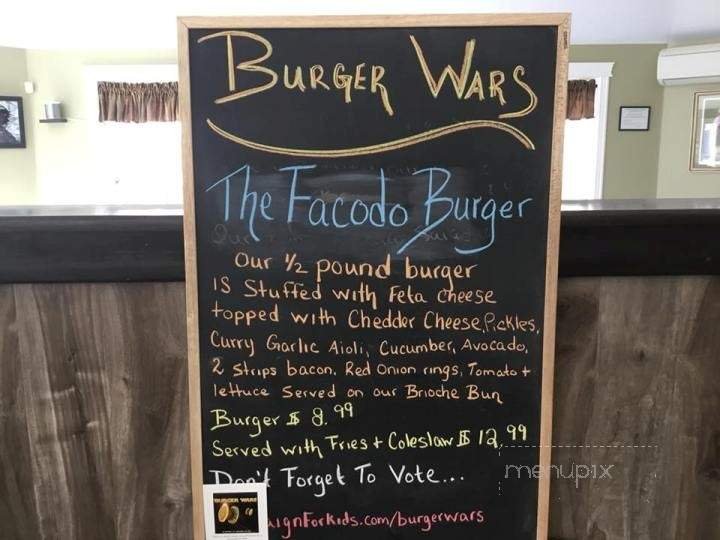 BURGER WARS
The Facodo Burger
Our 1/2 pound burger
IS Stuffed with Feta cheese
topped with Chedder Cheese, Pickles,
Curry Garlic Aioli, Cucumber, Avocado,
2 strips bacon, Red Onion rings, Tomato +
lettuce Served on our Brioche Bun
Burger $ 8.99
Served with Fries + Coleslaw $ 12.99
Don't Forget To Vote...
BURGER WARS
ignForkids.com/burgerwars
menupix